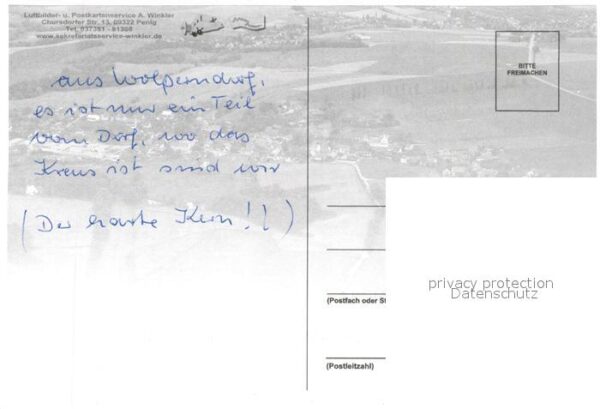 Luftbilder- u. Postkartenservice A. Winkler
Chursdorfer Str. 13, 09322 Penig
Tel. 037381 - 81398
www.sekretariatsservice-winkler.de
BITTE
FREIMACHEN
aus Wolperndorf,
es ist nur ein Teil
vom Dorf, wo das
Kreus ist sind wir
(Der harte Kern!!)
privacy protection
Datenschutz
(Postfach oder St
(Postleitzahl)